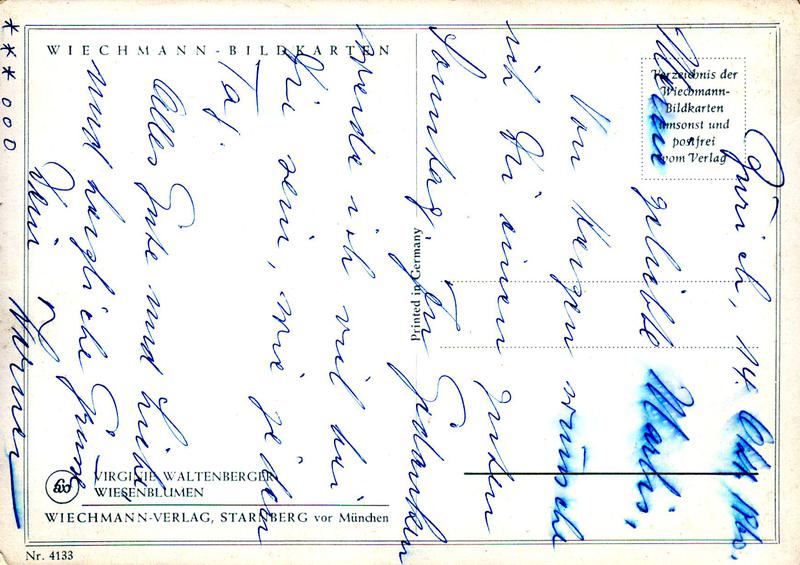 WIECHMANN-BILDKARTEN
Verzeichnis der
Wiechmann-
Bildkarten
umsonst und
postfrei
vom Verlag
Printed in Germany
Zürich, 14. Okt.
Meine geliebte
Von Herzen wünsche
ich Dir einen guten
Sonntag. In Gedanken
werde ich viel bei
Dir sein, wie jeden
Tag.
Alles Gute und Liebe
und herzliche Grüsse
Dein Werner
***000
VIRGINIE WALTENBERGER
WIESENBLUMEN
WIECHMANN-VERLAG, STARNBERG vor München
Nr. 4133